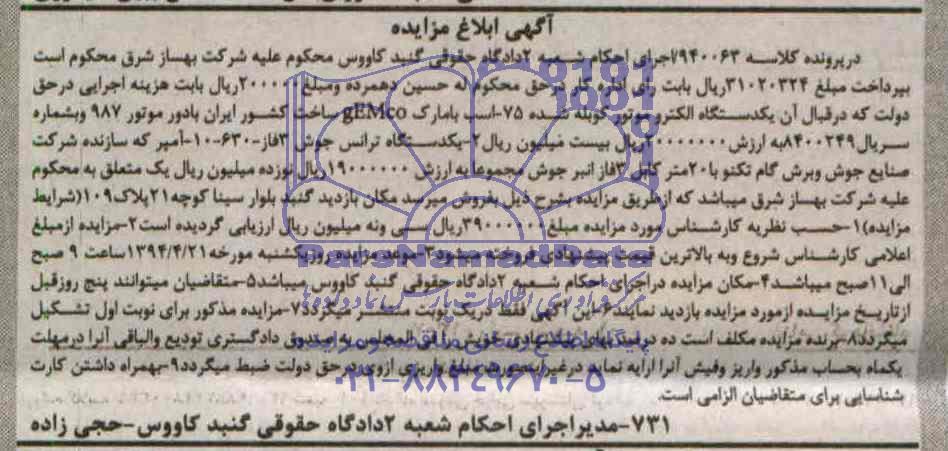 آگهی ابلاغ مزایده
درپرونده کلاسه ۹۴۰۰۶۳/اجرای احکام شعبه ۲دادگاه حقوقی گنبد کاووس محکوم علیه شرکت بهساز شرق محکوم است
بپرداخت مبلغ ۳۱۰۲۰۳۲۴ریال بابت رای اداره کار درحق محکوم له حسین دهمرده ومبلغ ۲۰۰۰۰۰۰ریال بابت هزینه اجرایی درحق
دولت که درقبال آن یکدستگاه الکتروموتور کوبله شده ۷۵-اسب بامارک gEMco ساخت کشور ایران بادور موتور ۹۸۷ وبشماره
سریال۸۴۰۰۲۴۹به ارزش۲۰۰۰۰۰۰۰ریال بیست میلیون ریال۲-یکدستگاه ترانس جوش ۳فاز-۶۳۰-۱۰-آمپر که سازنده شرکت
صنایع جوش وبرش گام تکنو با۲۰متر کابل ۳فاز انبر جوش مجموعا به ارزش ۱۹۰۰۰۰۰۰ریال نوزده میلیون ریال یک متعلق به محکوم
علیه شرکت بهساز شرق میباشد که ازطریق مزایده بشرح ذیل بفروش میرسد مکان بازدید گنبد بلوار سینا کوچه۲۱پلاک۱۰۹(شرایط
مزایده)۱-حسب نظریه کارشناس مورد مزایده مبلغ۳۹۰۰۰۰۰۰ریال سی ونه میلیون ریال ارزیابی گردیده است۲-مزایده ازمبلغ
اعلامی کارشناس شروع وبه بالاترین قیمت پیشنهادی فروخته میشود۳-موعد مزایده روزیکشنبه مورخه۱۳۹۴/۴/۲۱ساعت ۹ صبح
الی۱۱صبح میباشد۴-مکان مزایده دراجرای احکام شعبه ۲دادگاه حقوقی گنبد کاووس میباشد۵-متقاضیان میتوانند پنج روزقبل
ازتاریخ مزایده ازمورد مزایده بازدید نمایند۶-این آگهی فقط دریک نوبت منتشر میگردد۷-مزایده مذکور برای نوبت اول تشکیل
میگردد۸-برنده مزایده مکلف است ده درصدبهای پیشنهادی خویش را فی المجلس به صندوق دادگستری تودیع والباقی آنرا درمهلت
یکماه بحساب مذکور واریز وفیش آنرا ارایه نماید درغیراینصورت مبلغ واریزی ازوی درحق دولت ضبط میگردد۹-بهمراه داشتن کارت
شناسایی برای متقاضیان الزامی است.
۷۳۱-مدیراجرای احکام شعبه ۲دادگاه حقوقی گنبد کاووس-حجی زاده
ParsNamadData
۰۲۱-۸۸۳۴۹۶۷۰-۵